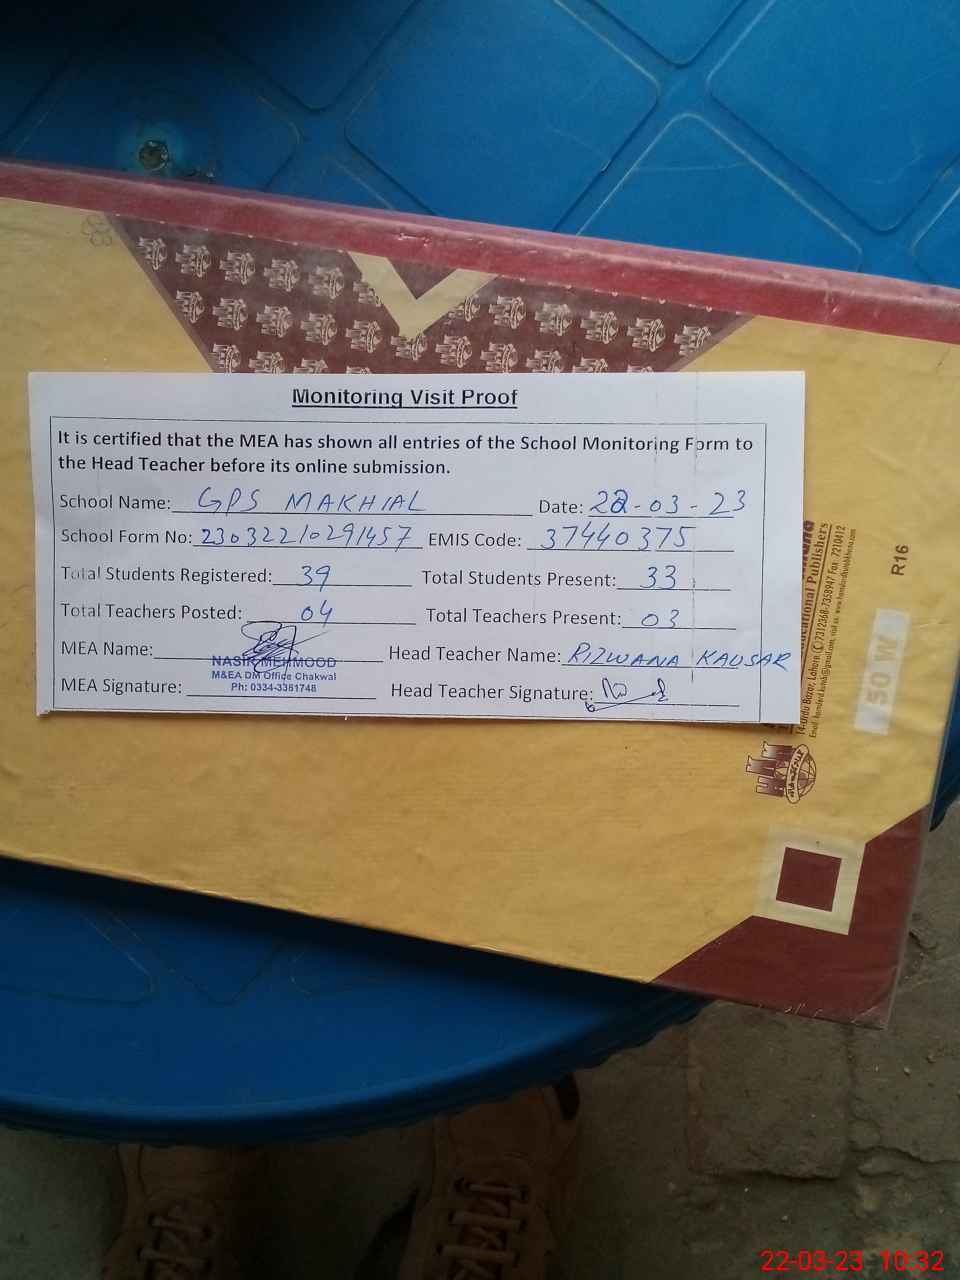 Monitoring Visit Proof
It is certified that the MEA has shown all entries of the School Monitoring Form to
the Head Teacher before its online submission.
School Name: GPS MAKHIAL Date: 22-03-23
School Form No: 23032210291457 EMIS Code: 37440375
Total Students Registered: 39 Total Students Present: 33
Total Teachers Posted: 04 Total Teachers Present: 03
MEA Name: Head Teacher Name: RIZWANA KAUSAR
NASIR MEHMOOD
M&EA DM Office Chakwal
Ph: 0334-3381748
MEA Signature: Head Teacher Signature:
Educational Publishers
14-Urdu Bazar, Lahore. 7312368-7358947 Fax: 7210412
R16
50 W
22-03-23 10:32